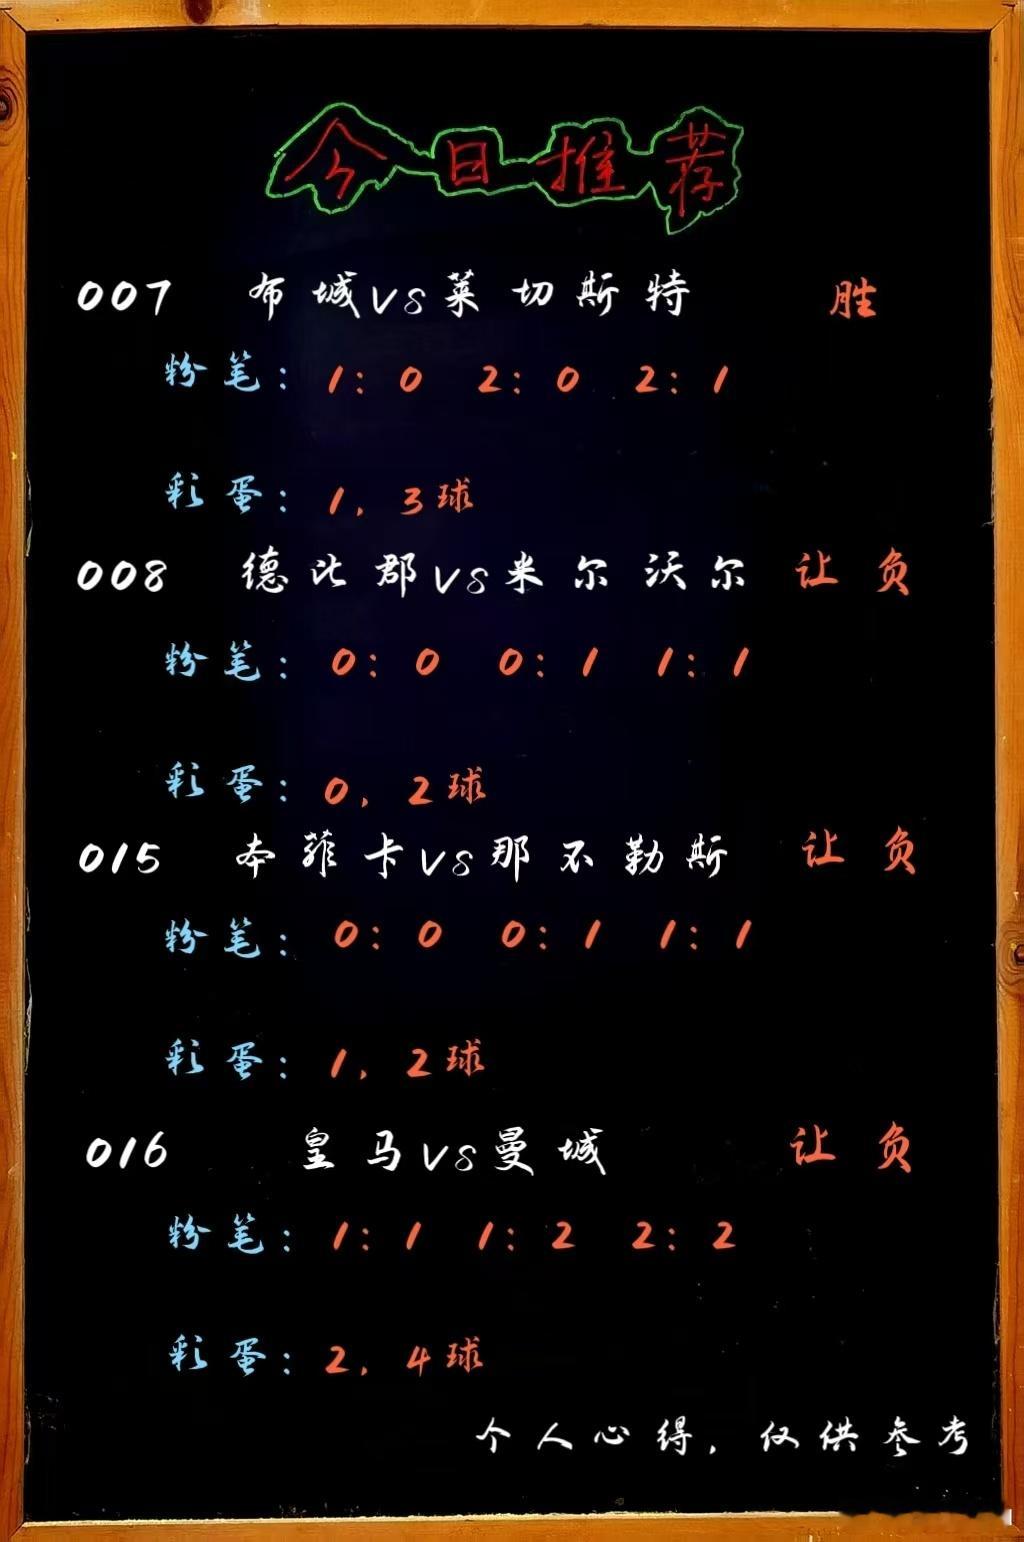 今日推荐
007 布城VS莱切斯特 胜
粉笔：1：0 2：0 2：1
彩蛋：1，3球
008 德比郡VS米尔沃尔 让负
粉笔：0：0 0：1 1：1
彩蛋：0，2球
015 本菲卡VS那不勒斯 让负
粉笔：0：0 0：1 1：1
彩蛋：1，2球
016 皇马VS曼城 让负
粉笔：1：1 1：2 2：2
彩蛋：2，4球
个人心得，仅供参考